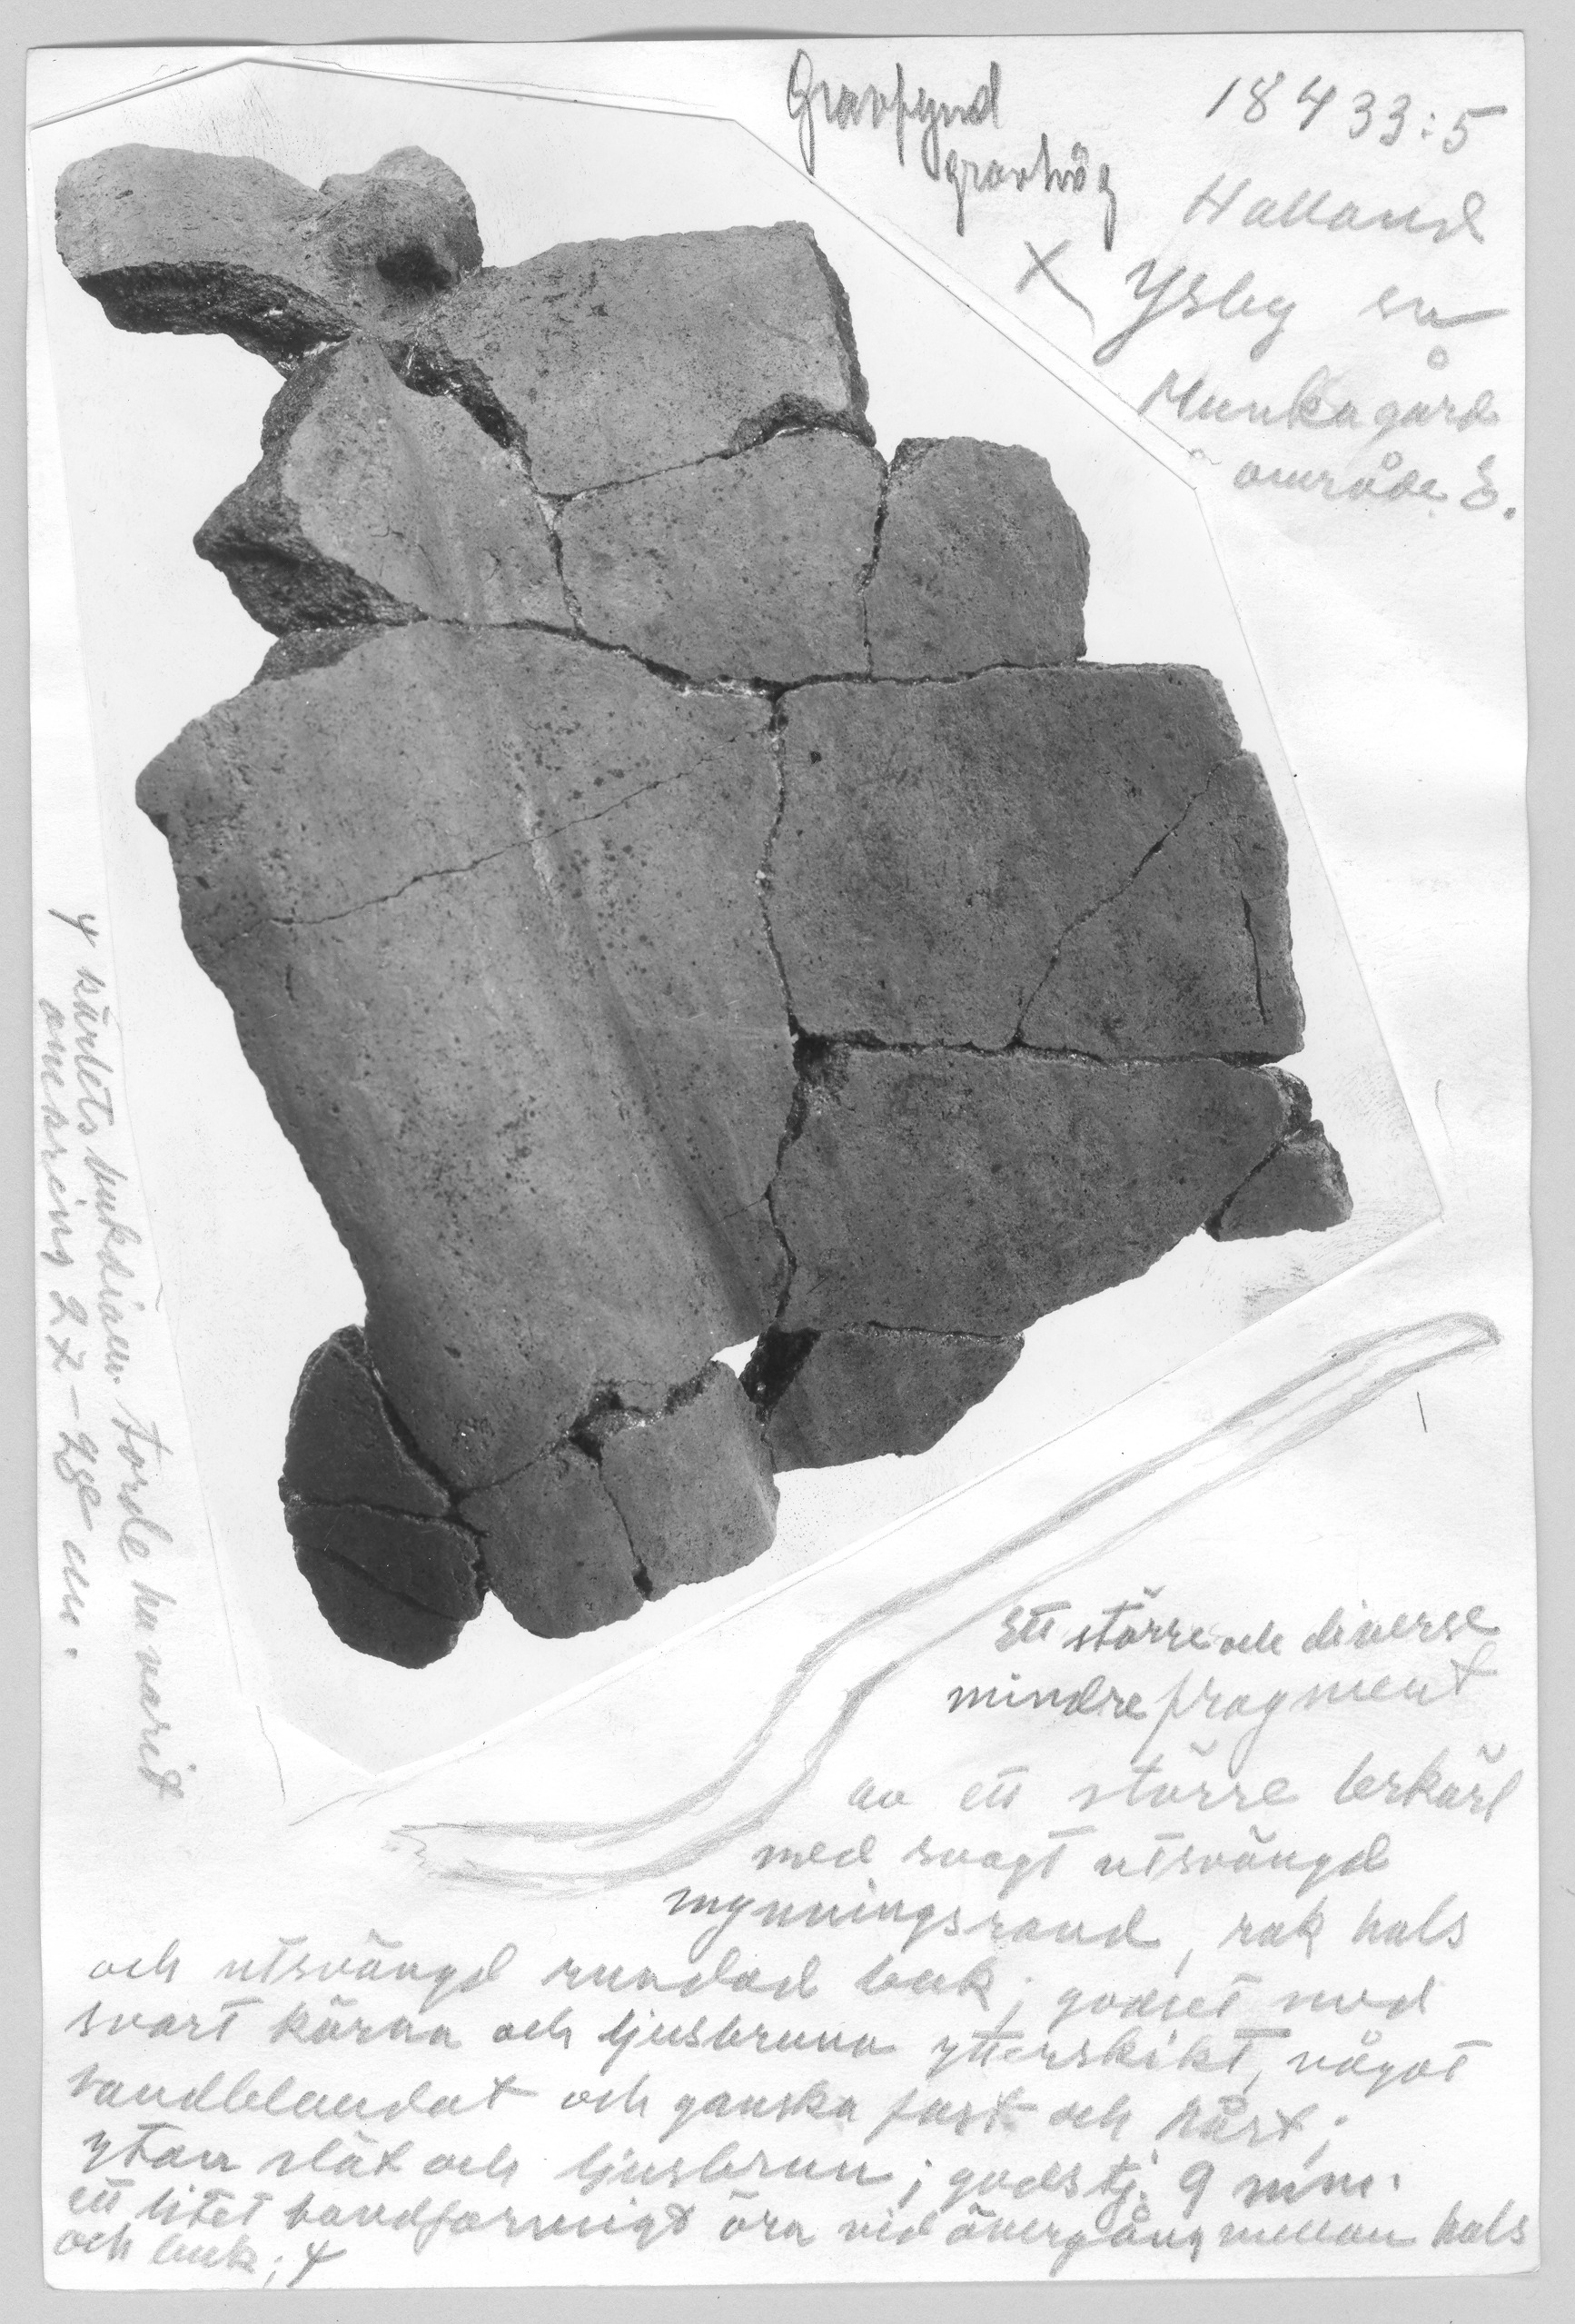 Gravfynd
gravhög
18433:5
Halland
X Ysby sn
Munkagård
område E.
Ett större och diverse
mindre fragment
av ett större lerkärl
med svagt utsvängd
mynningsrand, rak hals
och utsvängd rundad buk; godset med
svart kärna och ljusbruna ytterskikt, något
sandblandat och ganska fast och hårt;
ytan slät och ljusbrun; godstj. 9 mm.
ett litet bandformigt öra vid övergång mellan hals
och buk; γ
γ kärlets bukdiam. torde ha varit
omkring 27-28 cm.